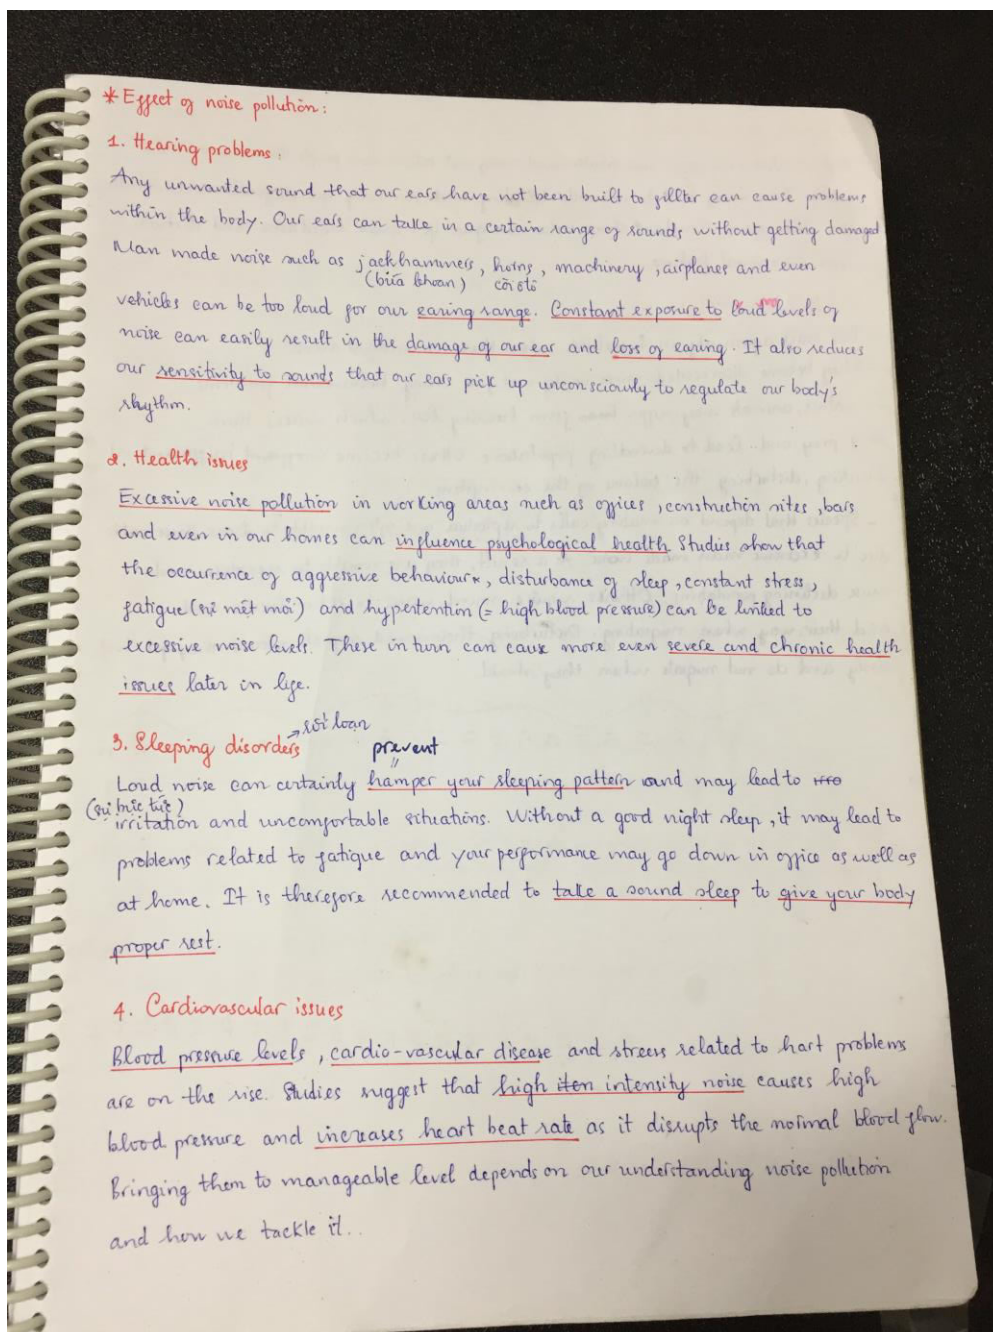 * Effect of noise pollution:
1. Hearing problems:
Any unwanted sound that our ears have not been built to fillter can cause problems
within the body. Our ears can take in a certain range of sounds without getting damaged
Man made noise such as jackhammers, horns, machinery, airplanes and even
(búa khoan) còi ôtô
vehicles can be too loud for our earing range. Constant exposure to loud levels of
noise can easily result in the damage of our ear and loss of earing. It also reduces
our sensitivity to sounds that our ears pick up unconsciously to regulate our body's
rhythm.
2. Health issues
Excessive noise pollution in working areas such as offices, construction sites, bars
and even in our homes can influence psychological health Studies show that
the occurrence of aggressive behaviour, disturbance of sleep, constant stress,
fatigue (sự mệt mỏi) and hypertention (= high blood pressure) can be linked to
excessive noise levels. These in turn can cause more even severe and chronic health
issues later in life.
→ rối loạn
3. Sleeping disorders
prevent
Loud noise can certainly hamper your sleeping pattern and may lead to
(sự bực tức)
irritation and uncomfortable situations. Without a good night sleep, it may lead to
problems related to fatigue and your performance may go down in office as well as
at home. It is therefore recommended to take a sound sleep to give your body
proper rest.
4. Cardiovascular issues
Blood pressure levels, cardio-vascular disease and stress related to hart problems
are on the rise. Studies suggest that high intensity noise causes high
blood pressure and increases heart beat rate as it disrupts the normal blood flow.
Bringing them to manageable level depends on our understanding noise pollution
and how we tackle it..